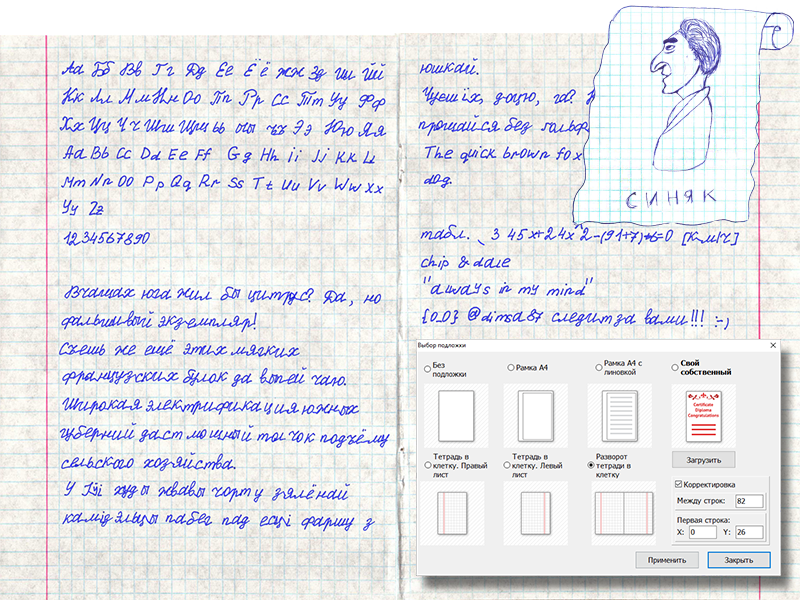 Аа Бб Вв Гг Дд Ее Ёё Жж Зз Ии Йй
Кк Лл Мм Нн Оо Пп Рр Сс Тт Уу Фф
Хх Цц Чч Шш Щщ Ьь Ыы Ъъ Ээ Юю Яя
Aa Bb Cc Dd Ee Ff Gg Hh Ii Jj Kk Ll
Mm Nn Oo Pp Qq Rr Ss Tt Uu Vv Ww Xx
Yy Zz
1234567890
В чащах юга жил бы цитрус? Да, но
фальшивый экземпляр!
Съешь же ещё этих мягких
французских булок да выпей чаю.
Широкая электрификация южных
губерний даст мощный толчок подъёму
сельского хозяйства.
У Іўі худы жвавы чорт у зялёнай
камізэльцы пабег пад есці фаршу з
юшкай.
Чуєш їх, доцю, га?
прощайся без гольф
The quick brown fox
dog.
табл. 3 45x+24x^2-(91+7)+6=0 [км/ч]
chip & dale
"always in my mind"
{0_0} @dimsa87 следит за вами!!! :-)
СИНЯК
Выбор подложки
Без подложки
Рамка А4
Рамка А4 с линовкой
Свой собственный
Certificate
Diploma
Congratulations
Загрузить
Тетрадь в клетку. Правый лист
Тетрадь в клетку. Левый лист
Разворот тетради в клетку
Корректировка
Между строк: 82
Первая строка:
X: 0 Y: 26
Применить Закрыть